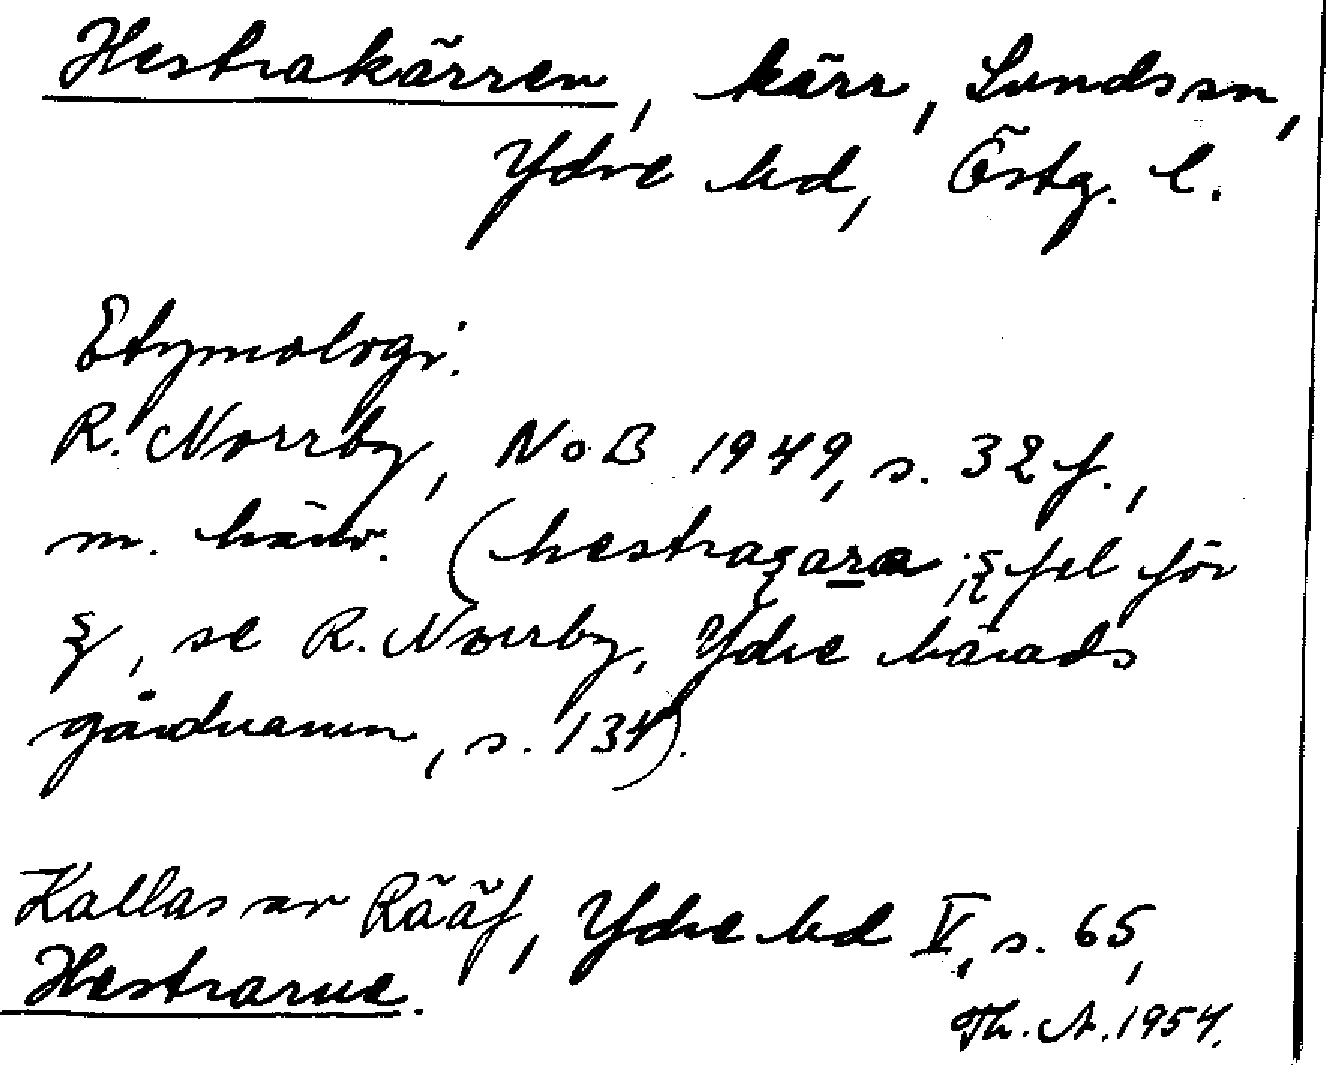 Hestrakärren, kärr, Sunds sn,
Ydre hd, Östg. l.
Etymologi:
R. Norrby, NoB 1949, s. 32 f.,
m. hänv. (hestraʒara; ʒ fel för
se R. Norrby, Ydre härads
gårdnamn, s. 134).
Kallas av Rääf, Ydre hd V, s. 65,
Hestrarne.
Th. A. 1954.